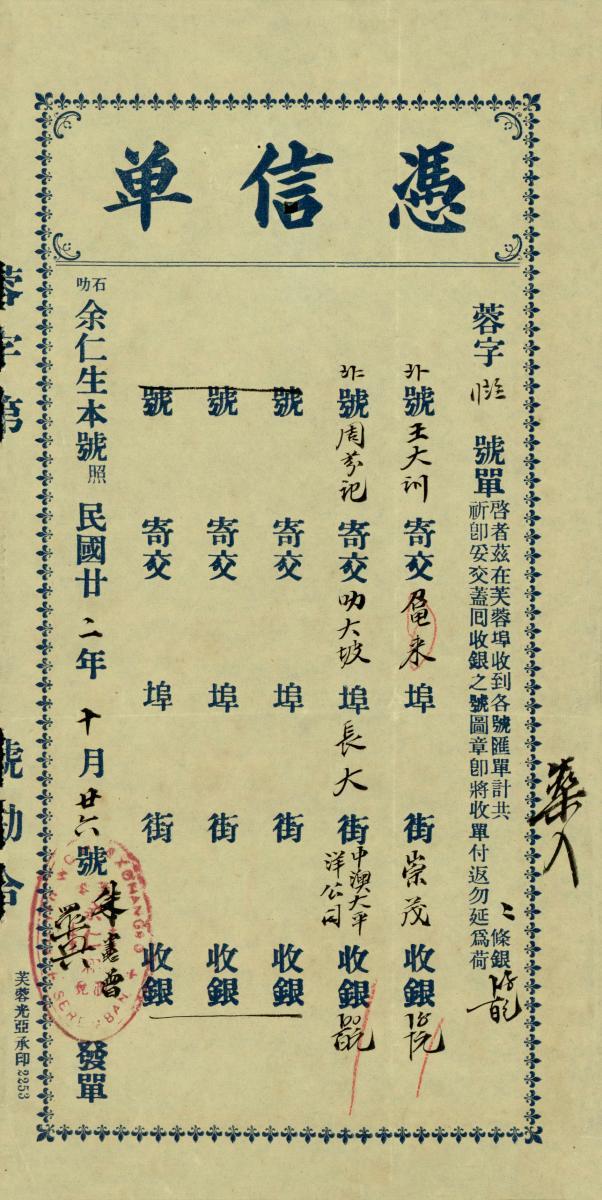 憑信单
蓉字 號單 啓者茲在芙蓉埠收到各號匯單計共 二 條銀
祈卽妥交蓋囘收銀之號圖章卽將收單付返勿延爲荷
號 王大训 寄交 来 埠 街 崇茂 收銀
號 周芬记 寄交 叻大坡 埠 長大 街 中澳大平洋公司 收銀
號 寄交 埠 街 收銀
號 寄交 埠 街 收銀
號 寄交 埠 街 收銀
石叻 余仁生本號 照 民國廿二年十月廿六號 發單
蓉字第 號勘合
藥入
SEREMBAN
芙蓉光亞承印 2253